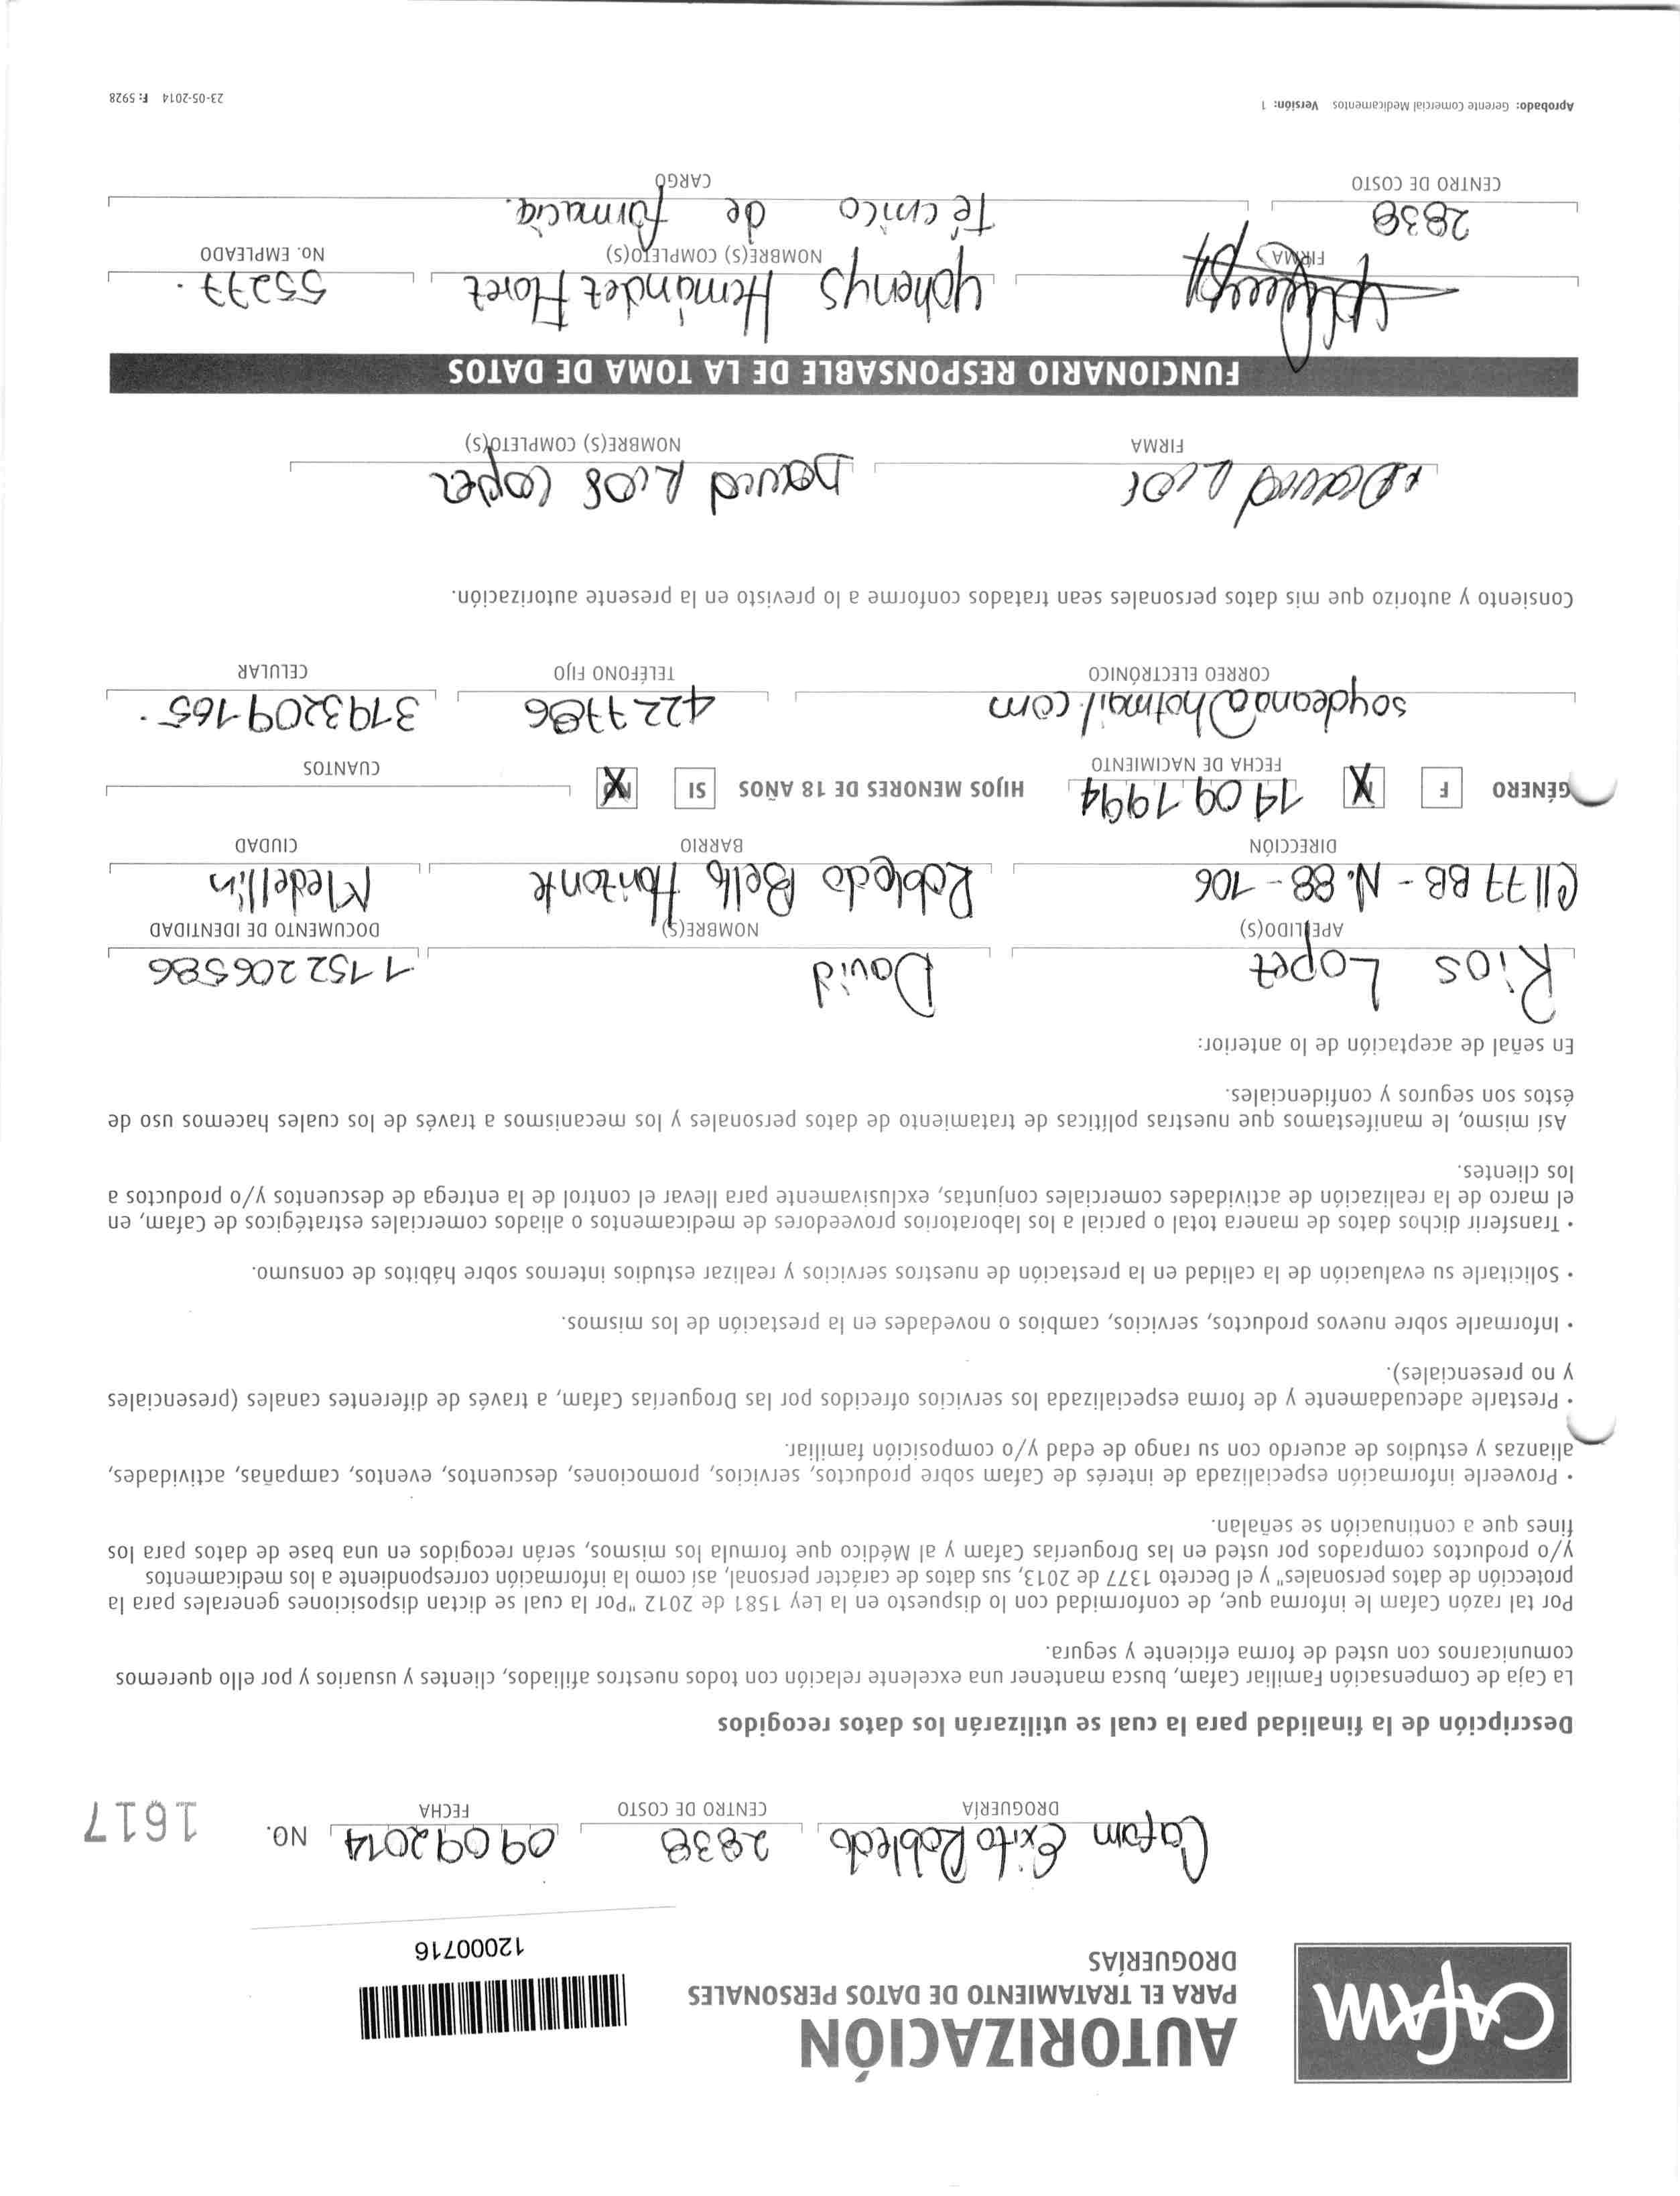 Cafam
AUTORIZACIÓN
PARA EL TRATAMIENTO DE DATOS PERSONALES
DROGUERÍAS
12000716
Cafam Exito Robledo 2838 09092014 NO. 1617
DROGUERÍA CENTRO DE COSTO FECHA
Descripción de la finalidad para la cual se utilizarán los datos recogidos
La Caja de Compensación Familiar Cafam, busca mantener una excelente relación con todos nuestros afiliados, clientes y usuarios y por ello queremos
comunicarnos con usted de forma eficiente y segura.
Por tal razón Cafam le informa que, de conformidad con lo dispuesto en la Ley 1581 de 2012 "Por la cual se dictan disposiciones generales para la
protección de datos personales" y el Decreto 1377 de 2013, sus datos de carácter personal, así como la información correspondiente a los medicamentos
y/o productos comprados por usted en las Droguerías Cafam y al Médico que formula los mismos, serán recogidos en una base de datos para los
fines que a continuación se señalan.
• Proveerle información especializada de interés de Cafam sobre productos, servicios, promociones, descuentos, eventos, campañas, actividades,
alianzas y estudios de acuerdo con su rango de edad y/o composición familiar.
• Prestarle adecuadamente y de forma especializada los servicios ofrecidos por las Droguerías Cafam, a través de diferentes canales (presenciales
y no presenciales).
• Informarle sobre nuevos productos, servicios, cambios o novedades en la prestación de los mismos.
• Solicitarle su evaluación de la calidad en la prestación de nuestros servicios y realizar estudios internos sobre hábitos de consumo.
• Transferir dichos datos de manera total o parcial a los laboratorios proveedores de medicamentos o aliados comerciales estratégicos de Cafam, en
el marco de la realización de actividades comerciales conjuntas, exclusivamente para llevar el control de la entrega de descuentos y/o productos a
los clientes.
Así mismo, le manifestamos que nuestras políticas de tratamiento de datos personales y los mecanismos a través de los cuales hacemos uso de
éstos son seguros y confidenciales.
En señal de aceptación de lo anterior:
Rios Lopez David 1152206586
APELLIDO(S) NOMBRE(S) DOCUMENTO DE IDENTIDAD
Cll 77 BB - N. 88 - 106 Robledo Bello Horizonte Medellin
DIRECCIÓN BARRIO CIUDAD
GÉNERO F X 14 09 1994 HIJOS MENORES DE 18 AÑOS SI NO X
FECHA DE NACIMIENTO CUANTOS
soydeana@hotmail.com 4227786 3193209165.
CORREO ELECTRÓNICO TELÉFONO FIJO CELULAR
Consiento y autorizo que mis datos personales sean tratados conforme a lo previsto en la presente autorización.
David Rios David Rios Lopez
FIRMA NOMBRE(S) COMPLETO(S)
FUNCIONARIO RESPONSABLE DE LA TOMA DE DATOS
Yohenys Hernández Florez 55277.
FIRMA NOMBRE(S) COMPLETO(S) No. EMPLEADO
2838 Técnico de farmacia.
CENTRO DE COSTO CARGO
Aprobado: Gerente Comercial Medicamentos Versión: 1 23-05-2014 F: 5928